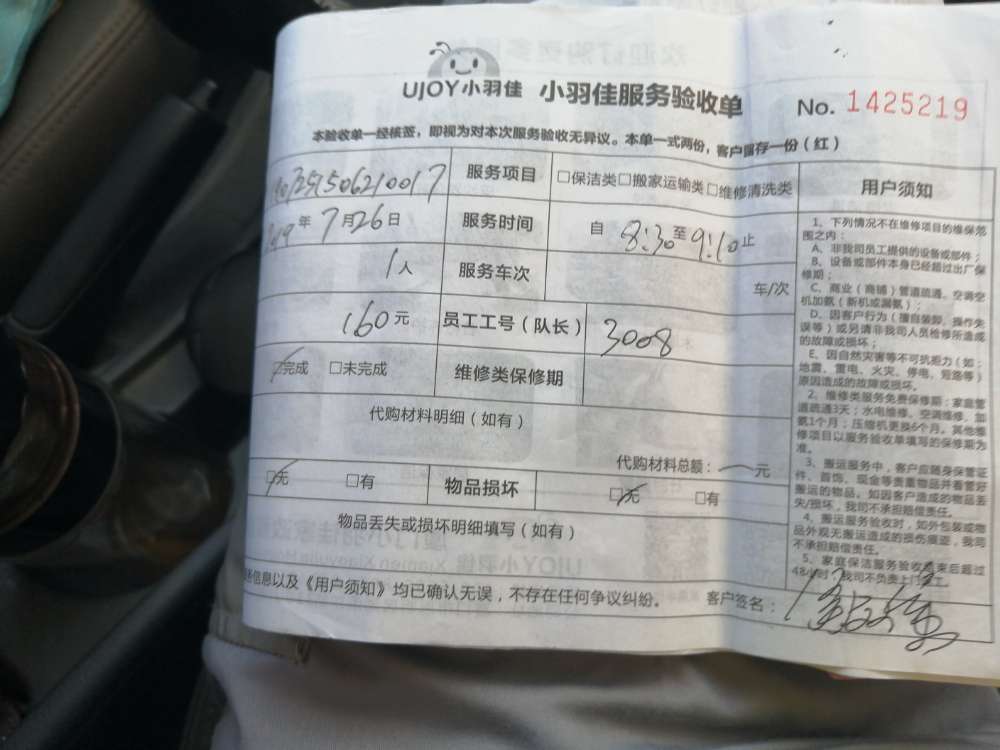 UJOY小羽佳 小羽佳服务验收单 No. 1425219
本验收单一经核签，即视为对本次服务验收无异议。本单一式两份，客户留存一份（红）
服务项目 □保洁类□搬家运输类□维修清洗类
年7月26日 服务时间 自 8:30至9:10止
1人 服务车次 车/次
160元 员工工号（队长） 3008
完成 □未完成 维修类保修期
代购材料明细（如有）
代购材料总额： 元
□无 □有 物品损坏 □无 □有
物品丢失或损坏明细填写（如有）
信息以及《用户须知》均已确认无误，不存在任何争议纠纷。 客户签名：
用户须知
1、下列情况不在维修项目的维保范
围之内：
A、非我司员工提供的设备或部件；
B、设备或部件本身已经超过出厂保
修期；
C、商业（商铺）管道疏通、空调空
机加氨（新机或漏氨）；
D、因客户行为（擅自装卸、操作失
误等）或另请非我司人员检修所造成
的故障或损坏；
E、因自然灾害等不可抗拒力（如：
地震、雷电、火灾、停电、短路等）
原因造成的故障或损坏。
2、维修类服务免费保修期：家庭管
道疏通3天；水电维修、空调维修、加
氨1个月；压缩机更换6个月。其他维
修项目以服务验收单填写的保修期为
准。
3、搬运服务中，客户应随身保管证
件、首饰、现金等贵重物品并看管好
搬运的物品。如因客户造成的物品丢
失/损坏，我司不承担赔偿责任。
4、搬运服务验收时，如外包装或物
品外观无搬运造成的损伤痕迹，我司
不承担赔偿责任。
5、家庭保洁服务验收结束后超过
48小时，我司不负责上门